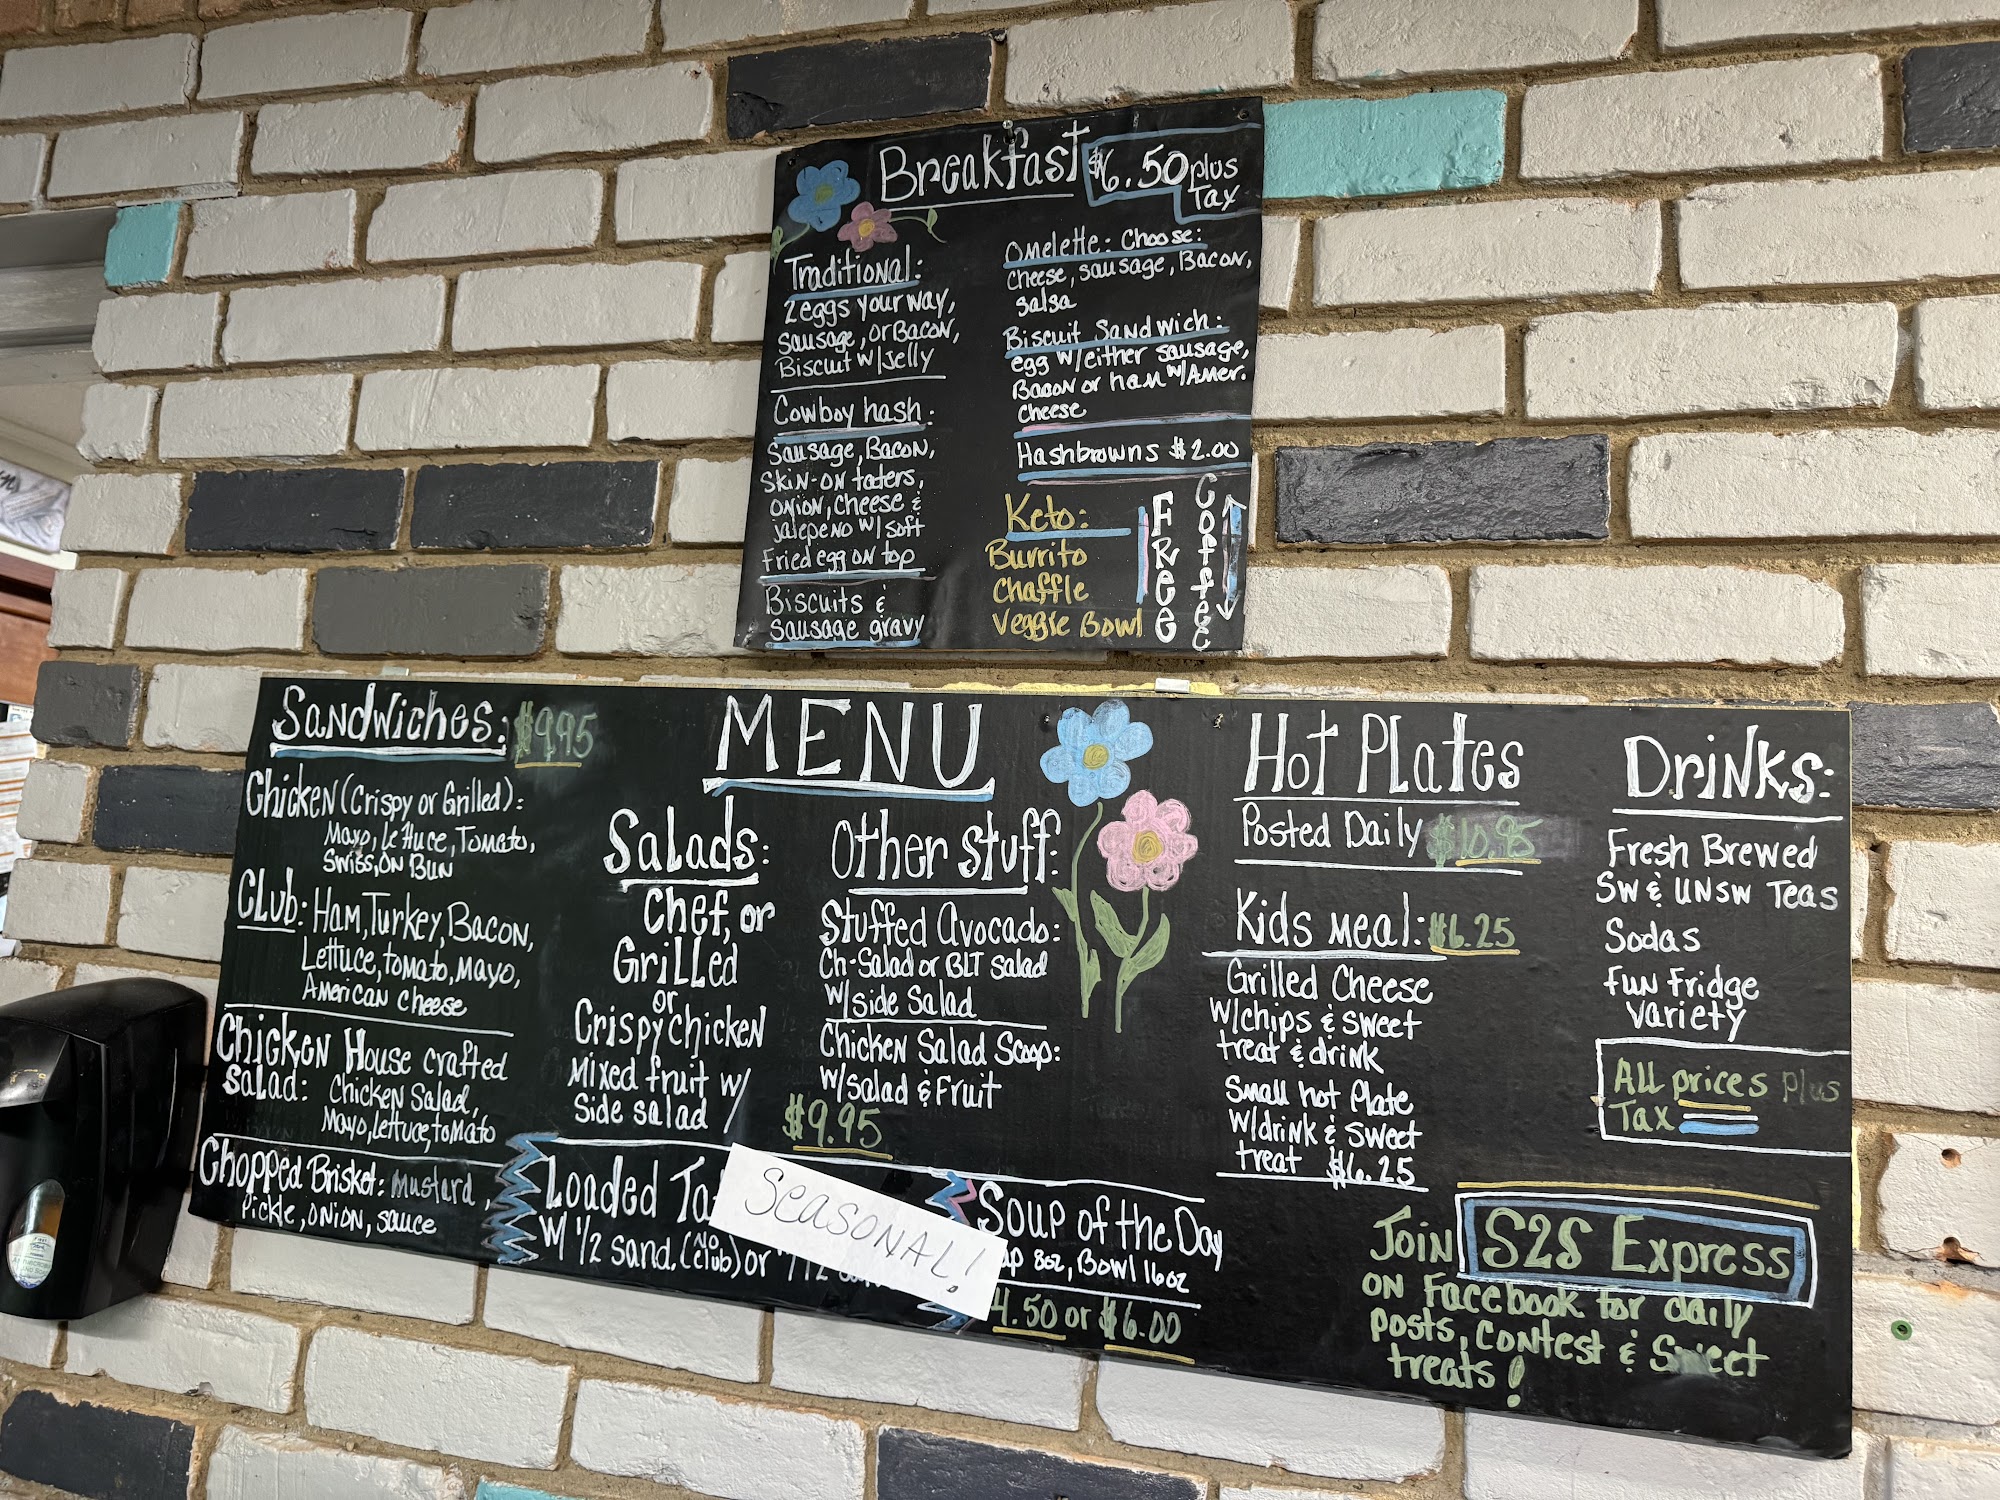 Breakfast $6.50 plus
Tax
Traditional:
2 eggs your way,
Sausage, or Bacon,
Biscuit w/ Jelly
Cowboy hash:
Sausage, Bacon,
Skin-on taters,
onion, cheese &
jalepeno w/ soft
Fried egg on top
Biscuits &
Sausage gravy
Omelette: Choose:
Cheese, sausage, Bacon,
Salsa
Biscuit Sandwich:
egg w/either sausage,
Bacon or ham w/Amer.
Cheese
Hashbrowns $2.00
Keto:
Burrito
Chaffle
Veggie Bowl
Free
Coffee
MENU
Sandwiches: $9.95
Chicken (Crispy or Grilled):
Mayo, Lettuce, Tomato,
Swiss, on Bun
Club: Ham, Turkey, Bacon,
Lettuce, tomato, Mayo,
American cheese
Chicken House crafted
Salad: Chicken Salad,
Mayo, Lettuce, tomato
Chopped Brisket: Mustard,
Pickle, onion, sauce
Salads:
Chef, or
Grilled
or
Crispy Chicken
Mixed fruit w/
Side salad
Other Stuff:
Stuffed Avocado:
Ch-Salad or BLT Salad
w/side Salad
Chicken Salad Scoop:
w/salad & Fruit
$9.95
Loaded
w/ 1/2 sand. (No Club) or
SEASONAL!
Soup of the Day
8oz, Bowl 16oz
4.50 or $6.00
Hot Plates
Posted Daily $10.95
Kids Meal: $6.25
Grilled Cheese
w/chips & sweet
treat & drink
Small hot Plate
w/drink & sweet
treat $6.25
Drinks:
Fresh Brewed
SW & UNSW Teas
Sodas
Fun Fridge
Variety
All prices plus
Tax
Join S2S Express
on Facebook for daily
posts, contest & Sweet
treats!